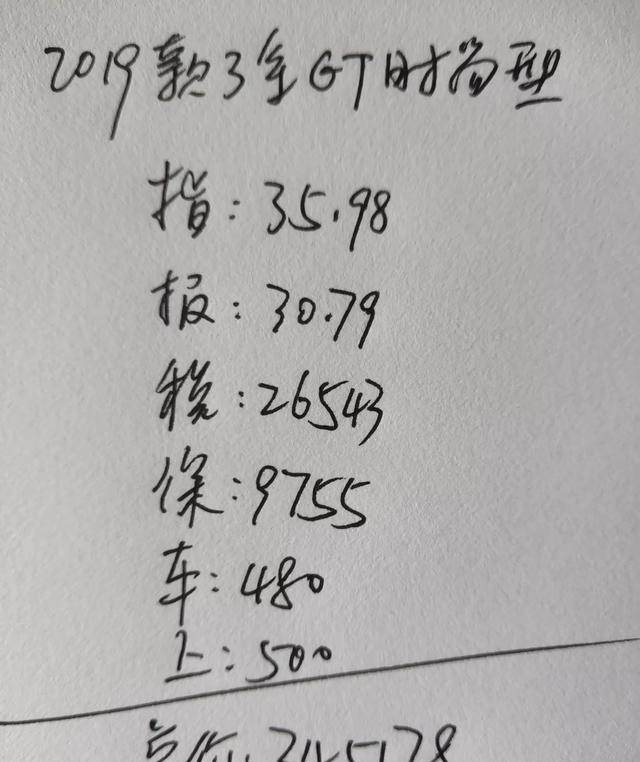 2019款3系GT时尚型
指:35.98
报:30.79
税:26543
保:9755
车:480
上:500